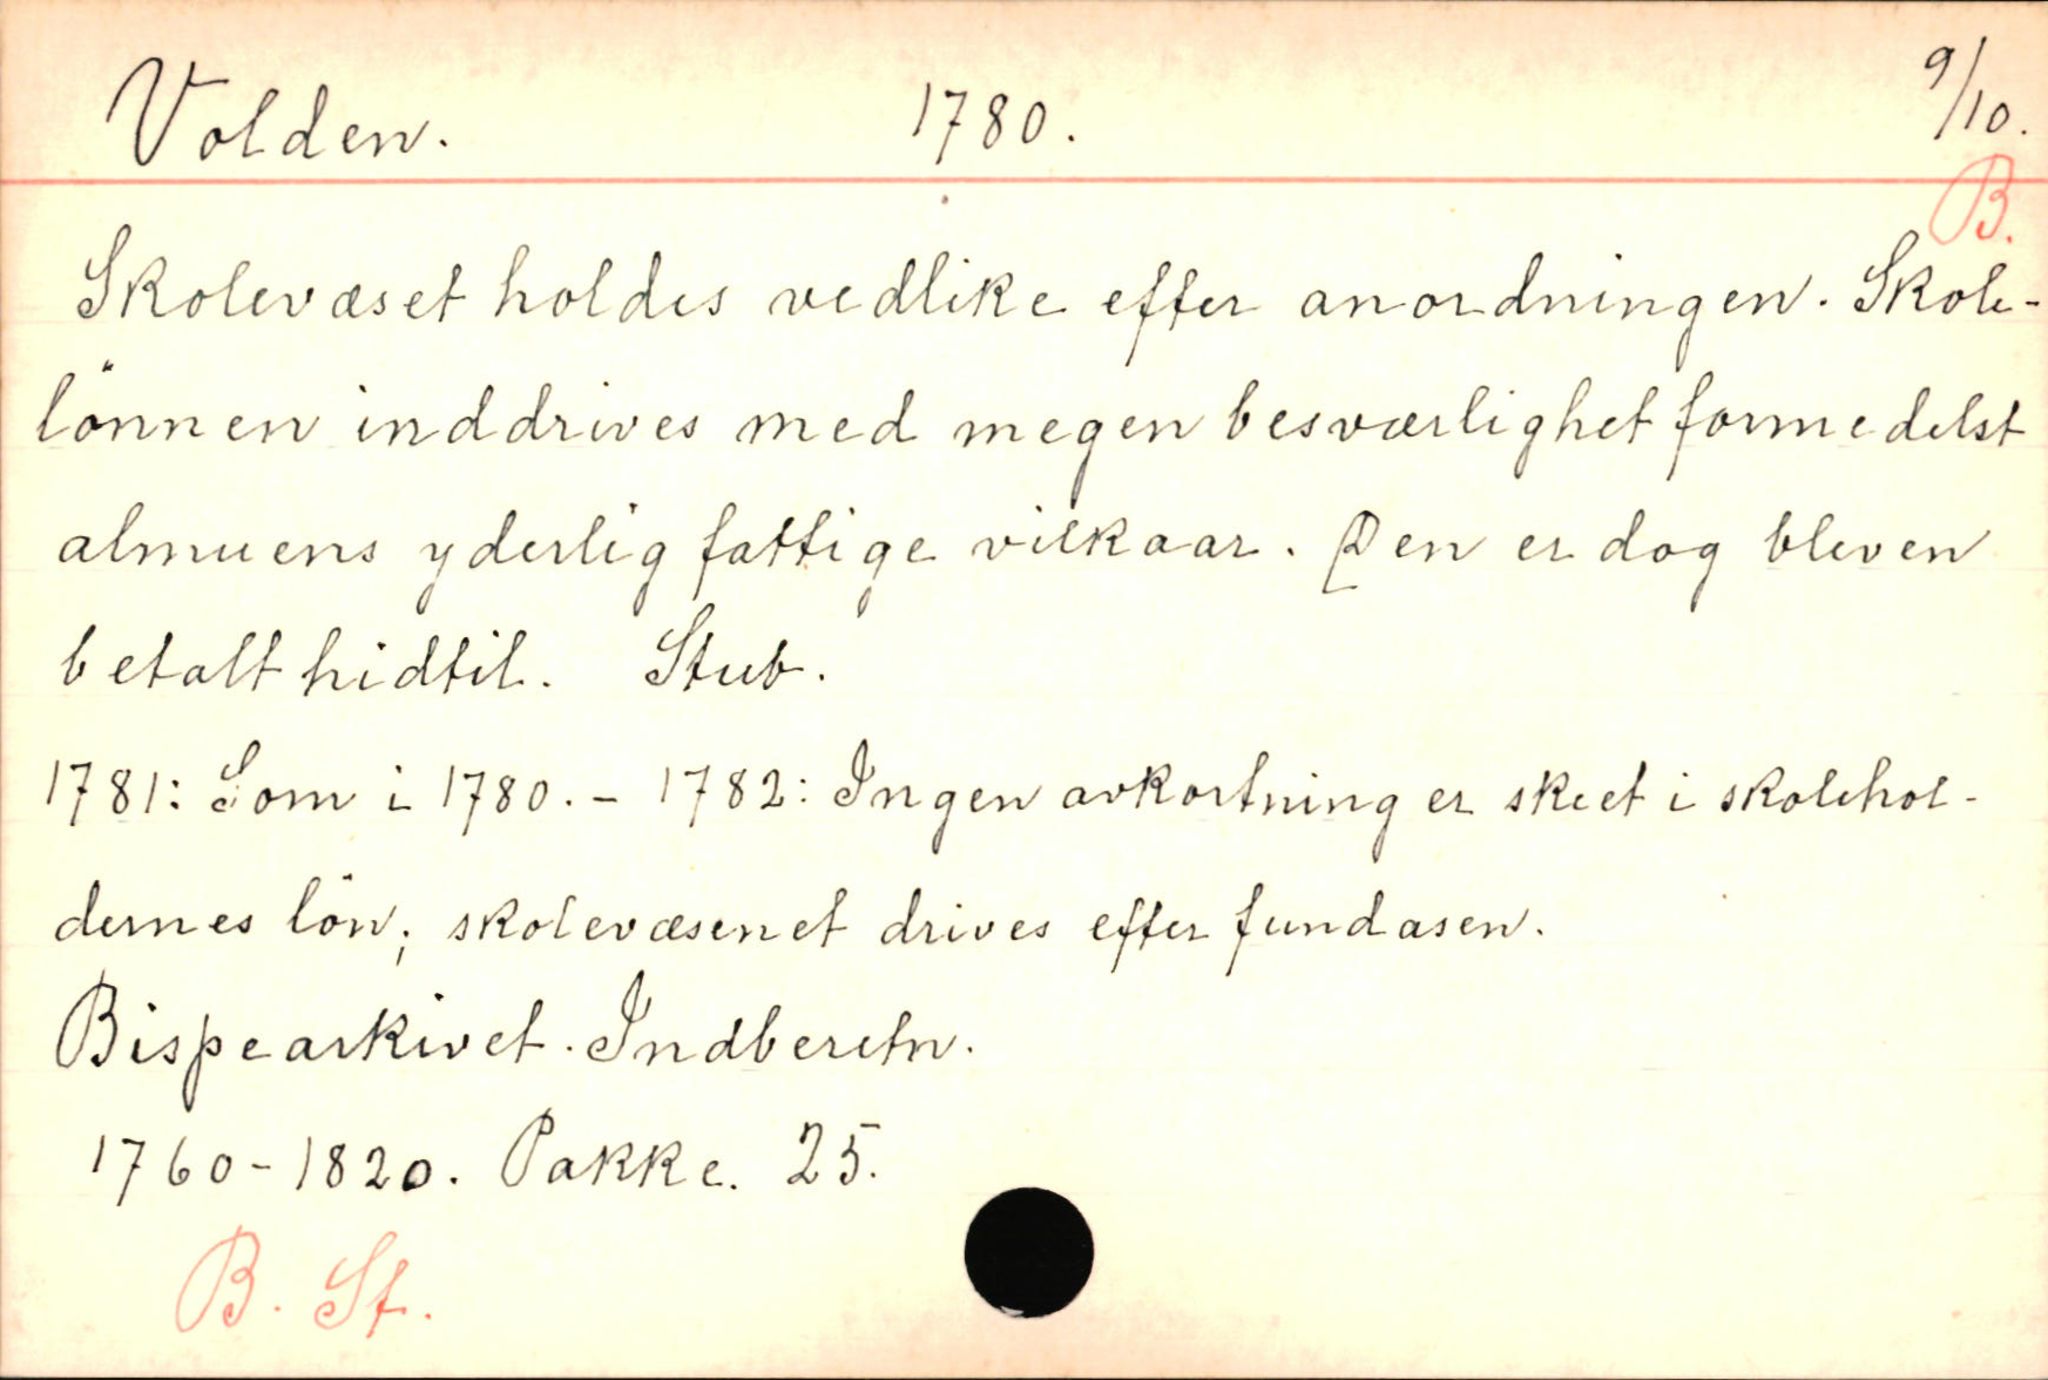 Volden. 1780. 9/10.
B.
Skolevæset holdes vedlike efter anordningen. Skole-
lönnen inddrives med megen besværlighet formedelst
almuens yderlig fattige vilkaar. Den er dog bleven
betalt hidtil. Stub.
1781: Som i 1780. - 1782: Ingen avkortning er skeet i skolehol-
dernes lön; skolevæsenet drives efter fundasen.
Bispearkivet. Indberetn.
1760-1820. Pakke. 25.
B. St.